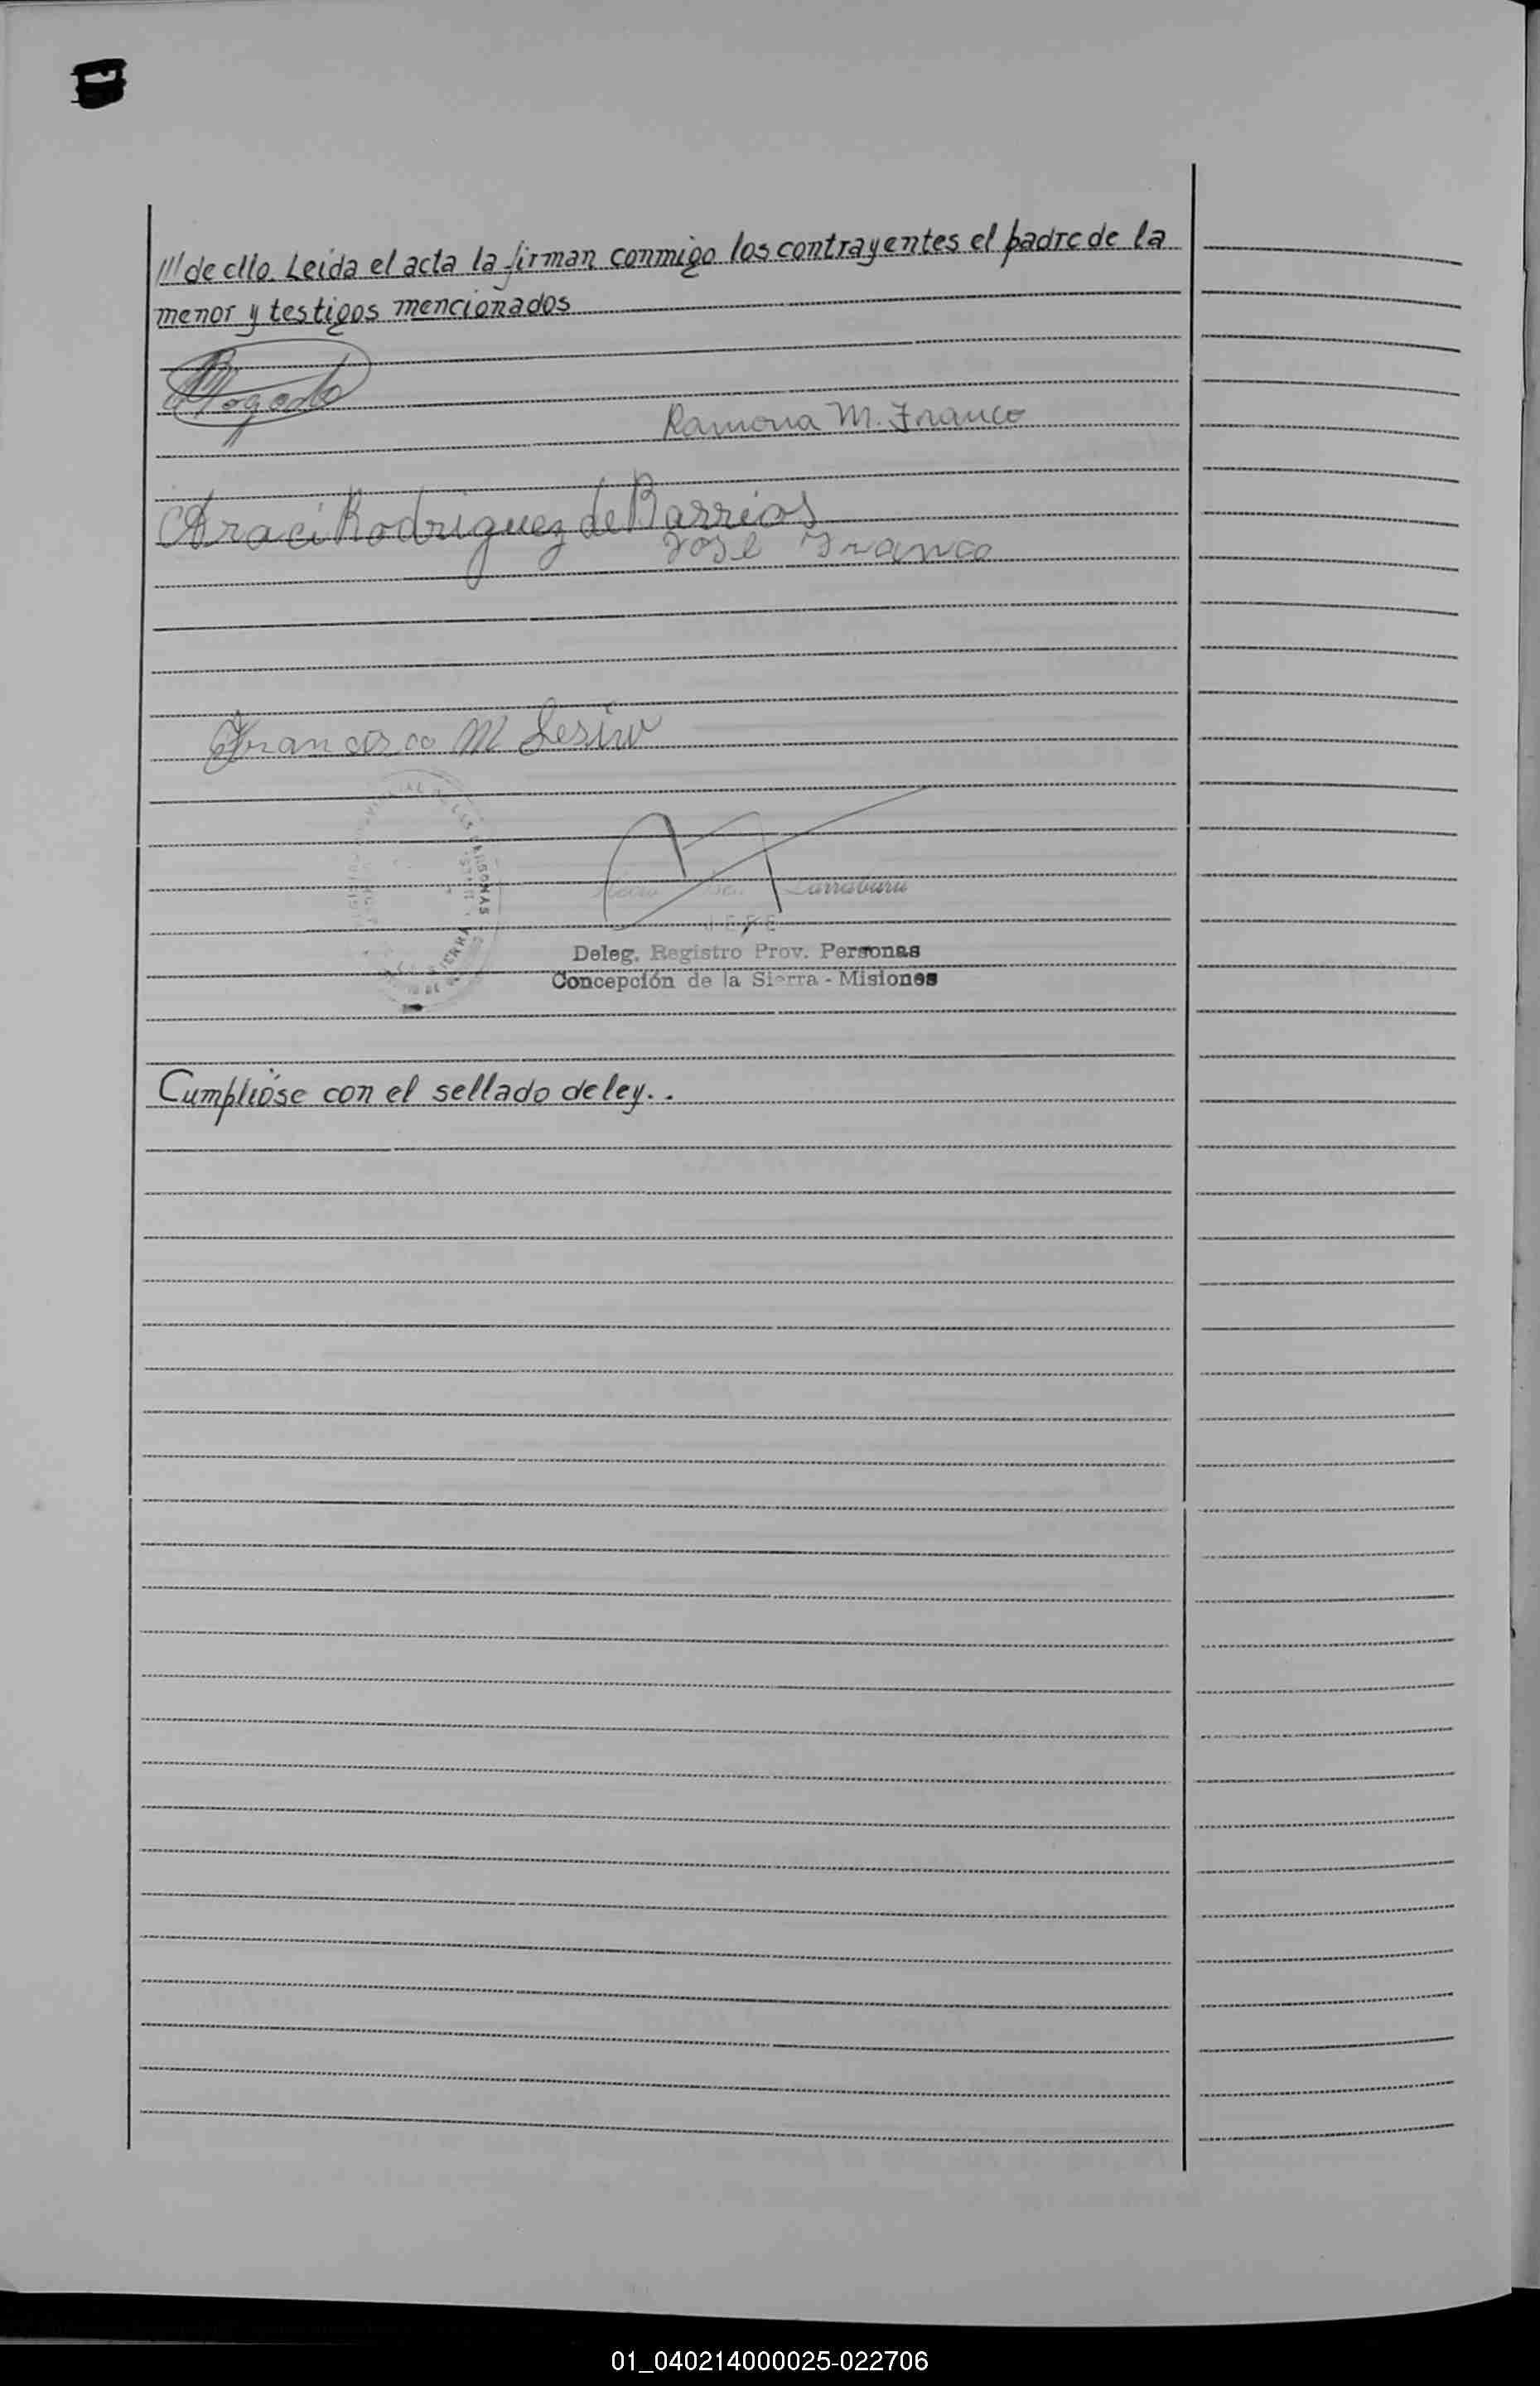 /// de ello. Leida el acta la firman conmigo los contrayentes el padre de la
menor y testigos mencionados
Ramona M. Franco
Araci Rodriguez de Barrios
José Franco
Francisco M
Larraburu
JEFE
Deleg. Registro Prov. Personas
Concepción de la Sierra - Misiones
Cumplióse con el sellado de ley..
01_040214000025-022706